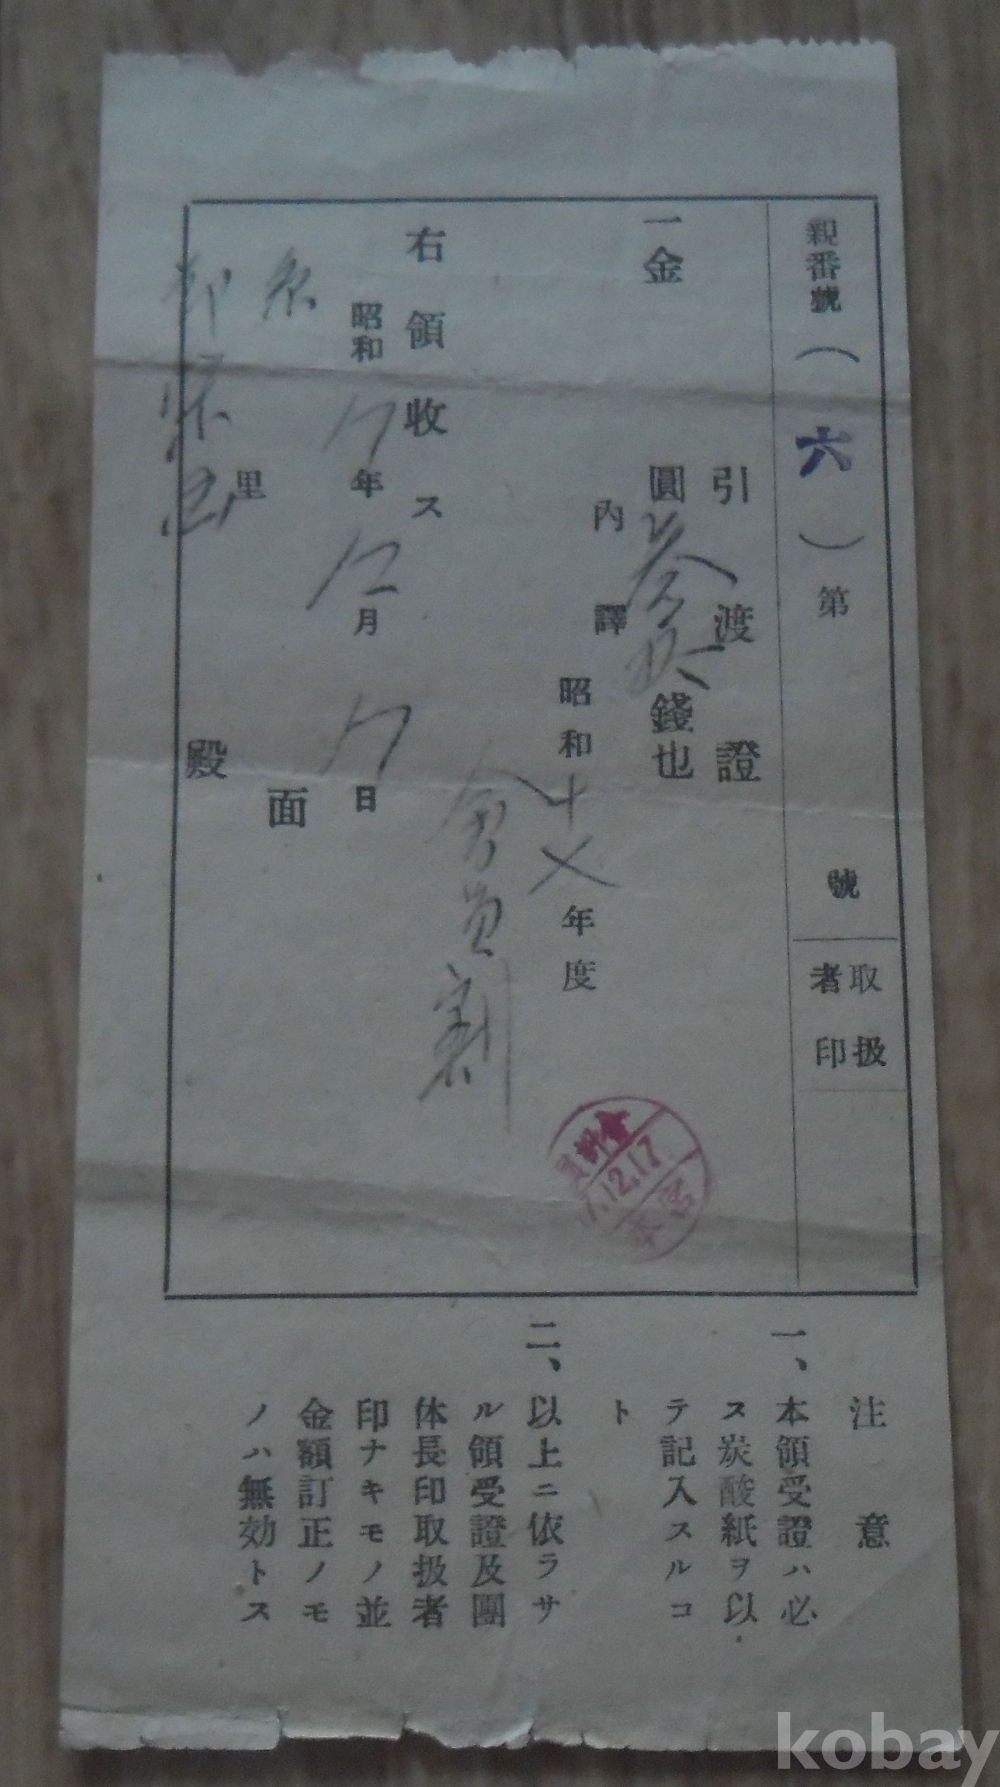 親番號(六)第 號
取扱者印
引渡證
一金 圓 錢也
內譯
昭和十七年度
會員割
右領收ス
昭和17年12月17日
里 面
殿
12.17
注意
一、本領受證ハ必
ス炭酸紙ヲ以
テ記入スルコ
ト
二、以上ニ依ラサ
ル領受證及團
体長印取扱者
印ナキモノ並
金額訂正ノモ
ノハ無効トス
kobay